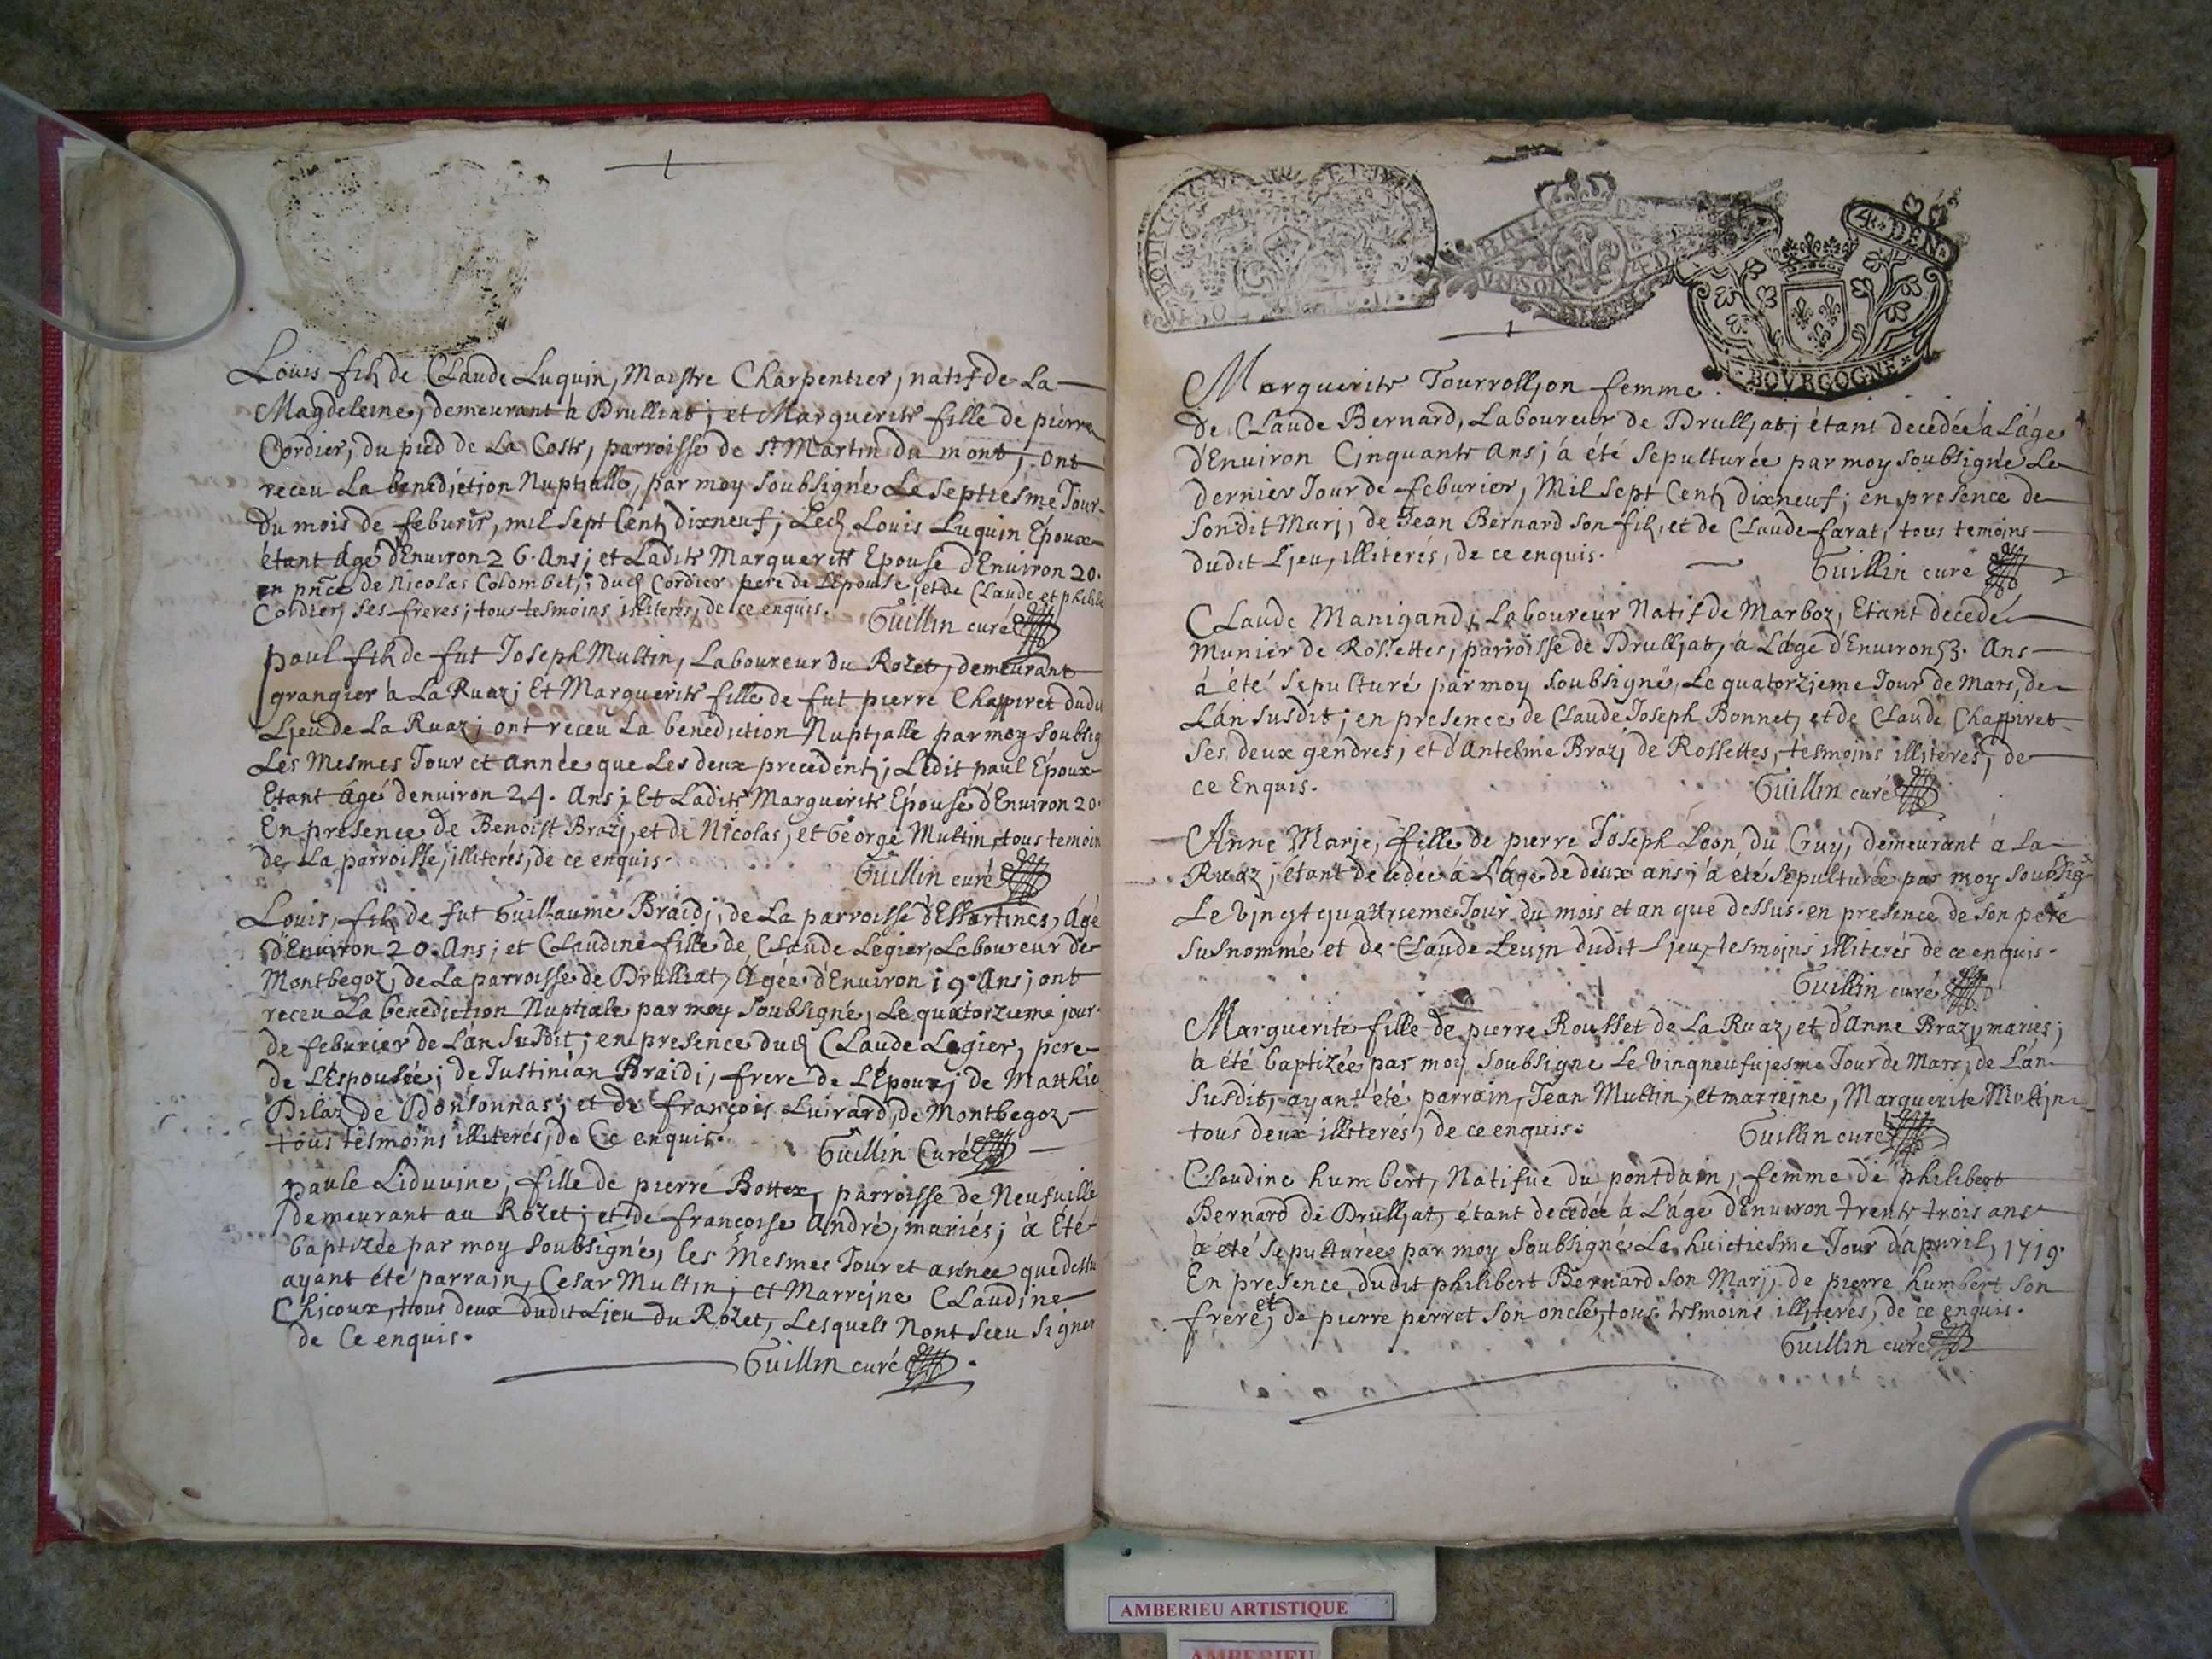 Louis fils de Claude Luquin, Maistre Charpentier, natif de La
Magdeleine, demeurant à Drulliat; et Marguerite fille de pierre
Cordier, du pied de La Coste, parroisse de st Martin du mont, ont
receu La benedjctjon Nuptjalle, par moy soubsigné Le septiesme Jour
du mois de feburier, mil sept Cents dixneuf; Led Louis Luquin Epoux
étant Agé d'Enuiron 26. Ans; et Ladite Marguerite Epouse d'Enuiron 20.
en pnce de Nicolas Colombet; dud Cordier pere de L'Epouse, et de Claude et
Cordier, ses freres; tous tesmoins illiterés, de ce enquis. Guillin curé
paul fils de fut Joseph Multin, Laboureur du Rozet, demeurant
grangier à La Ruaz; Et Marguerite fille de fut pierre Chappiret dudi
Ljeu de La Ruaz; ont receu La benediction Nuptjalle par moy soubsig
Les Mesmes Jour et année que Les deux precedents; Ledit paul Epoux
Etant Agé d'enuiron 24. Ans; Et Ladite Marguerite Epouse d'Enuiron 20.
En presence de Benoist Brazj, et de Nicolas, et George Multin, tous temoin
de La parroisse, illiterés, de ce enquis. Guillin curé
Louis, fils de fut Guillaume Braidj, de La parroisse d'Essartines, Agé
d'Enuiron 20. Ans; et Claudine fille de Claude Legier, Laboureur de
Montbegoz, de La parroisse de Drulliat, Agée d'Enuiron 19. Ans; ont
receu La benediction Nuptiale par moy soubsigné, Le quatorzieme jour
de feburier de L'an susdit; en presence dud Claude Legier, pere
de L'Espousée; de Justinian Braidi, frere de L'Epoux; de Matthieu
Pilaz de Donsonnas; et de françois Luirard, de Montbegoz
tous tesmoins illiterés, de Ce enquis. Guillin Curé
paule Liduuine, fille de pierre Bottex, parroisse de Neufuille
demeurant au Rozet; et de francoise André, mariés; à Eté
baptizée par moy soubsigné, les Mesmes Jour et année que dessu
ayant été parrain, Cesar Multin; et Marrejne Claudine
Chicoux, tous deux dudit Lieu du Rozet, Lesquels N'ont sceu signer
de Ce enquis.
Guillin curé
4 DEN
BOVRGOGNE
Marguerite Tourrolljon femme
de Claude Bernard, Laboureur de Drulljat; étant decedée à L'âge
d'Enuiron Cinquante Ans; à été sepulturée par moy soubsigné Le
dernier Jour de feburier, Mil sept Cents dixneuf; en presence de
sondit Marj, de Jean Bernard son fils, et de Claude farat, tous temoins
dudit Ljeu, illiterés, de ce enquis. Guillin curé
Claude Manigand, Laboureur Natif de Marboz, Etant decedé
Munier de Rossettes, parroisse de Drulljat, à L'âge d'Enuiron 53. Ans
à été sepulturé par moy soubsigné, Le quatorzieme Jour de Mars, de
L'an susdit; en presence de Claude Joseph Bonnet, et de Claude Chappiret
ses deux gendres; et d'Antelme Brazj de Rossettes, tesmoins illiterés, de
ce Enquis. Guillin curé
Anne Marje, fille de pierre Joseph Leon du Cruy, demeurant à La
Ruaz; étant decedée à L'âge de deux ans; à été sepulturée par moy soubsig
Le vingt quattrieme Jour du mois et an que dessus. en presence de son pere
susnommé et de Claude Leuin dudit Ljeux tesmoins illiterés de ce enquis.
Guillin curé
Marguerite fille de pierre Rousset de La Ruaz, et d'Anne Brazy, mariés;
à été baptizée par moy soubsigné Le vingneufujesme Jour de Mars, de L'an
susdit, ayant été parrain, Jean Multin, et marrejne, Marguerite Multjn
tous deux illiterés, de ce enquis. Guillin curé
Claudine humbert, Natifue du pontdain, femme de philibert
Bernard de Drulljat, étant decedée à L'âge d'Enuiron trente trois ans
à été sepulturée par moy soubsigné Le huictiesme Jour d'apuril, 1719.
En presence dudit philibert Bernard son Marj, de pierre humbert son
frere, et de pierre perret son oncle, tous tesmoins illiterés, de ce enquis.
Guillin curé
AMBERIEU ARTISTIQUE
AMBERIEU